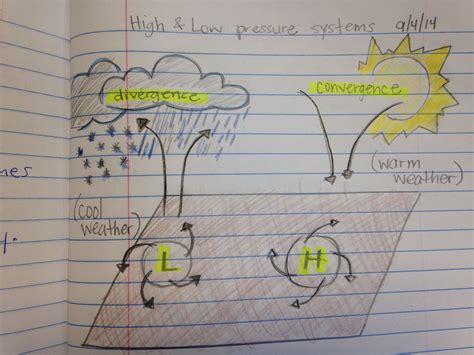 High & Low pressure systems 9/4/14
divergence
convergence
(cool
weather)
(warm
weather)
L
H